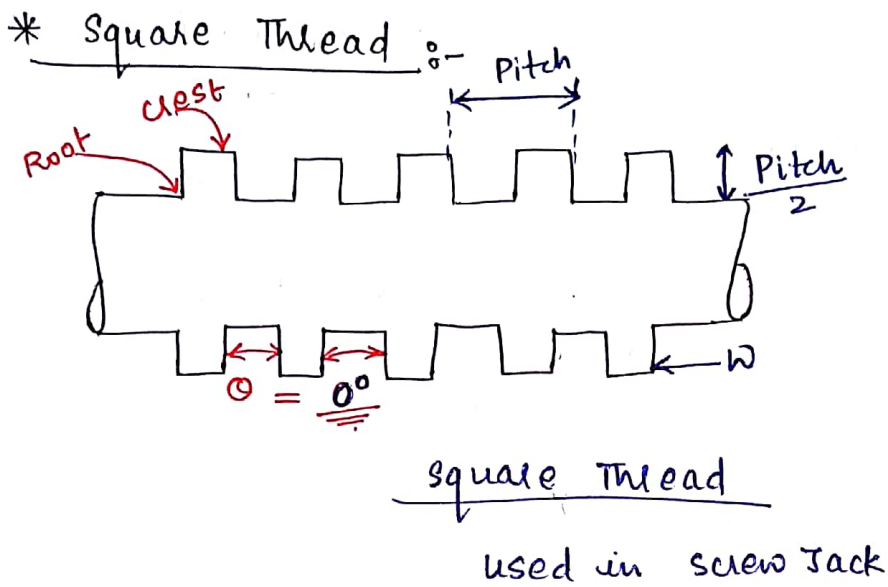 * Square Thread :-
Pitch
Crest
Root
Pitch/2
W
θ = 0°
Square Thread
used in screw Jack